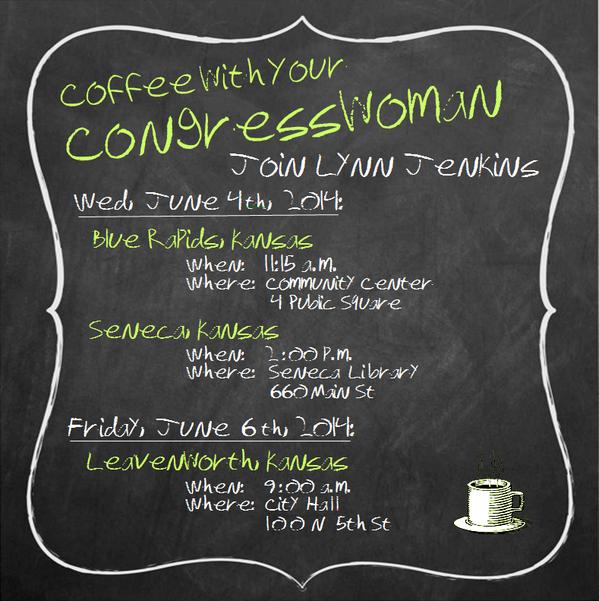 Coffee with your
Congresswoman
Join Lynn Jenkins
Wed, June 4th, 2014:
Blue Rapids, Kansas
When: 11:15 a.m.
Where: Community Center
4 Public Square
Seneca, Kansas
When: 2:00 P.m.
Where: Seneca Library
660 Main St
Friday, June 6th, 2014:
Leavenworth, Kansas
When: 9:00 a.m.
Where: City Hall
100 N 5th St